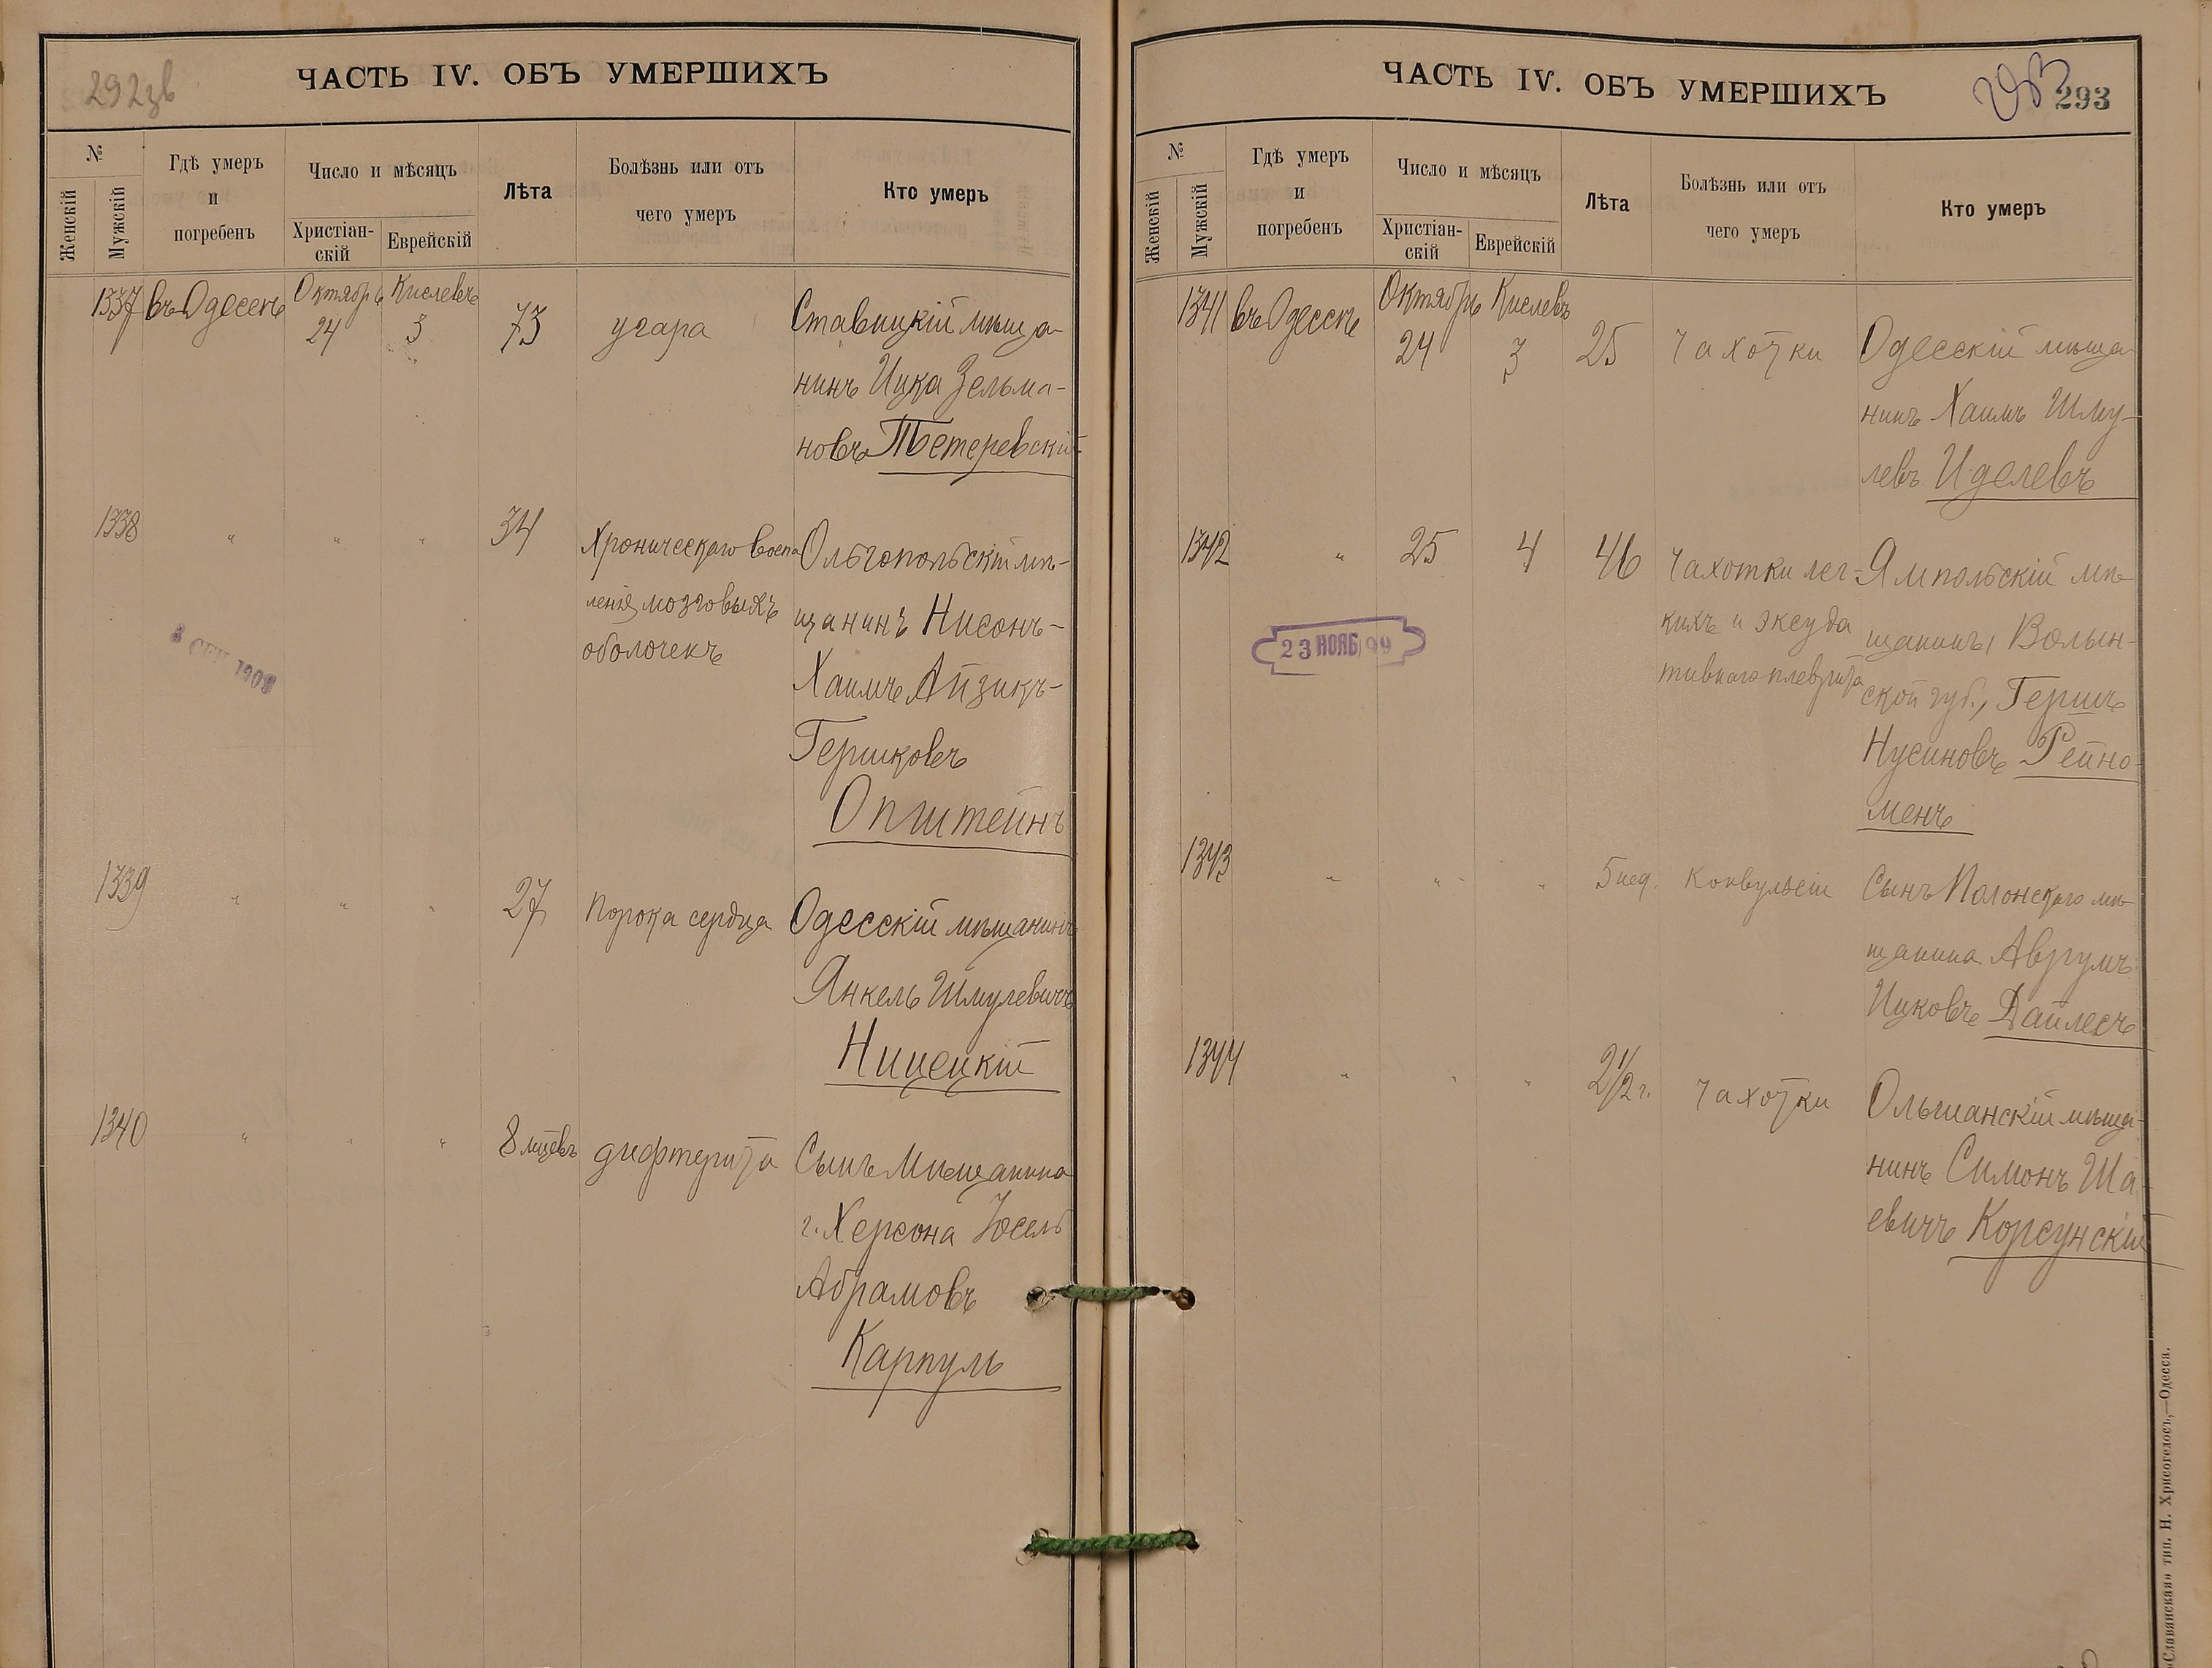 292зв
ЧАСТЬ IV. ОБЪ УМЕРШИХЪ
№
Женскій
Мужскій
Гдѣ умеръ
и
погребенъ
Число и мѣсяцъ
Христіан-
скій
Еврейскій
Лѣта
Болѣзнь или отъ
чего умеръ
Кто умеръ
1337 въ Одессѣ Октябрь 24 Кислевъ 3 73 угара Ставицкій мѣща-
нинъ Ицка Зельма-
новъ Тетеревскій
1338 " " " 34 Хроническаго воспа Ольгопольскій мѣ-
ленія мозговыхъ щанинъ Нисонъ-
оболочекъ Хаимъ Айзикъ-
Гершковъ
Општейнъ
8 СЕН 1908
1339 " " " 27 Порока сердца Одесскій мѣщанинъ
Янкель Шмулевичъ
Ницецкій
1340 " " " 8 мцевъ дифтерита Сынъ Мѣщанина
г. Херсона Іосель
Абрамовъ
Карпуль
ЧАСТЬ IV. ОБЪ УМЕРШИХЪ
293
293
№
Женскій
Мужскій
Гдѣ умеръ
и
погребенъ
Число и мѣсяцъ
Христіан-
скій
Еврейскій
Лѣта
Болѣзнь или отъ
чего умеръ
Кто умеръ
1341 въ Одессѣ Октябрь 24 Кислевъ 3 25 Чахотки Одесскій мѣща-
нинъ Хаимъ Шму-
левъ Иделевъ
1342 " 25 4 46 Чахотки лег- Ямпольскій мѣ-
кихъ и эксуда щанинъ, Волын-
тивнаго плеврита ской губ., Гершъ
Нусиновъ Рейно-
менъ
23 НОЯБ 99
1343 " " " 5 нед. Конвульсіи Сынъ Полонскаго мѣ-
щанина Аврумъ
Ицковъ Дайлесъ
1344 " " " 2 1/2 г. Чахотки Ольшанскій мѣща-
нинъ Симонъ Ша-
евичъ Корсунскій
«Славянская» тип. Н. Хрисогелосъ,—Одесса.